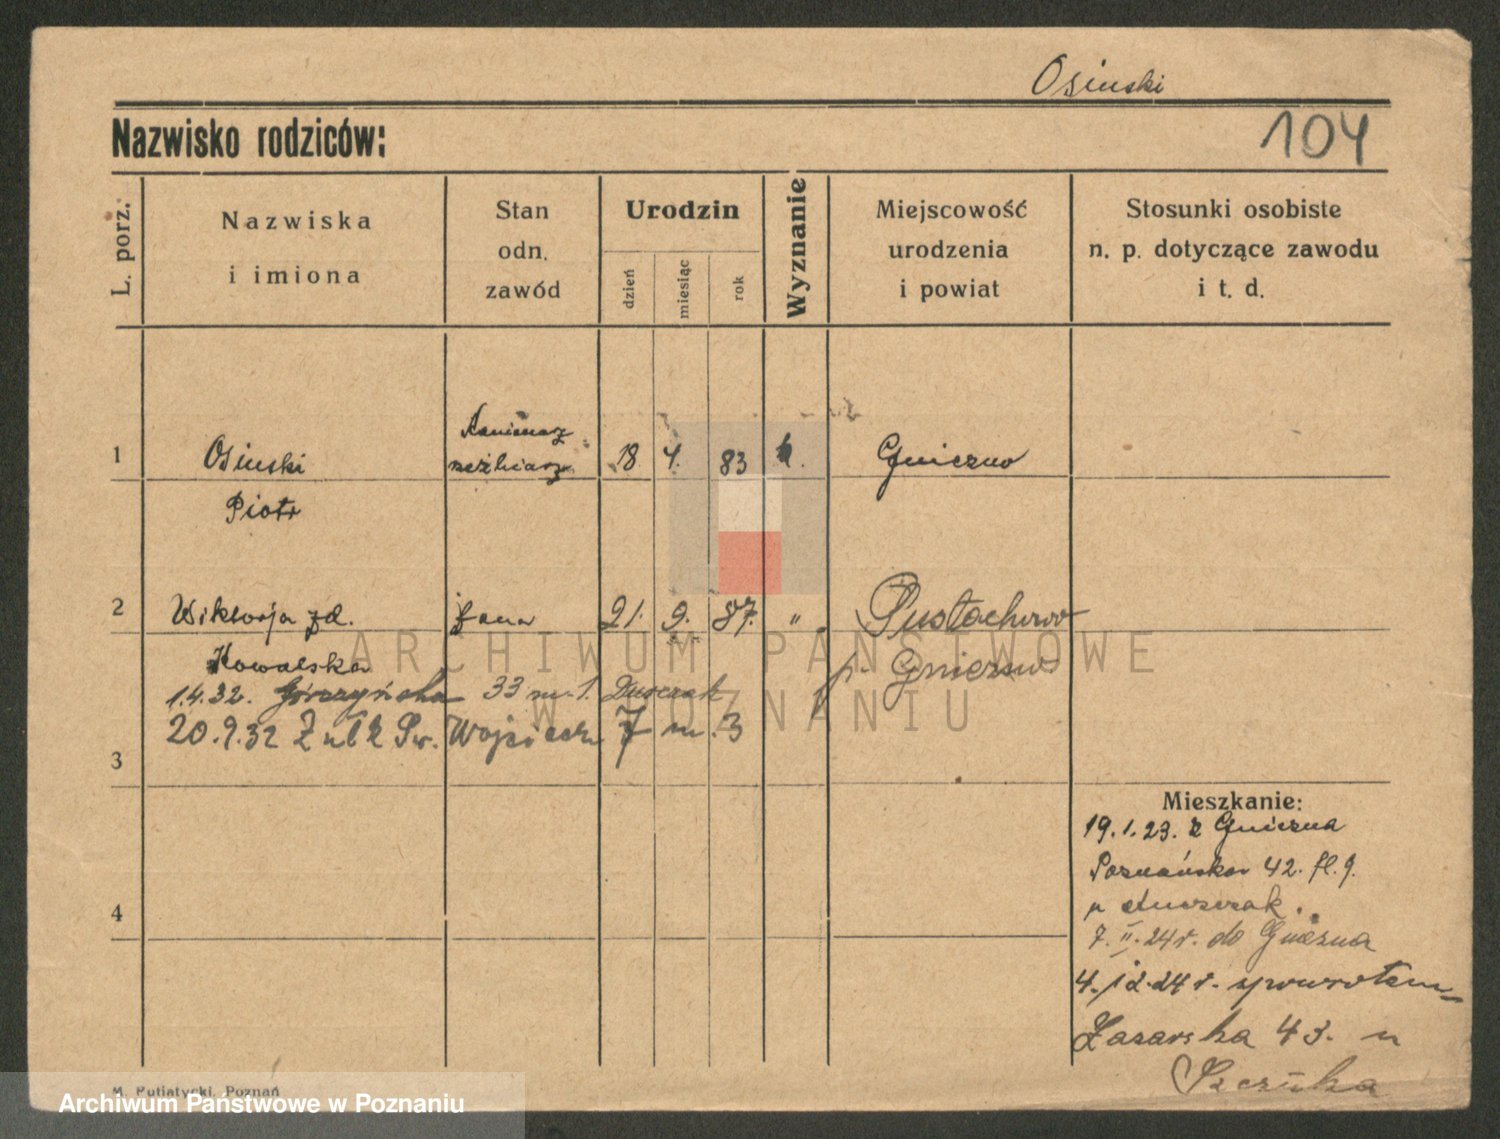 Osinski
Nazwisko rodziców:
104
L. porz.
Nazwiska
i imiona
Stan
odn.
zawód
Urodzin
dzień
miesiąc
rok
Wyznanie
Miejscowość
urodzenia
i powiat
Stosunki osobiste
n. p. dotyczące zawodu
i t. d.
1
Osinski
Piotr
18 4. 83 k.
Gniezno
2
Wiktorja zd.
Kowalska
żona
21. 9. 87. "
Pustachowo
p. Gniezno
1.4.32. Górczyńska 33 m. 1.
20.9.32 Sw. Wojciech 7 m. 3
3
4
Mieszkanie:
19.1.23. z Gniezna
Poznańska 42. 
7. II. 24 r. do Gniezna
4. 12. 24 r. spowrotem
Łazarska 43. u
M. Putiatycki, Poznań
ARCHIWUM PAŃSTWOWE
W POZNANIU
Archiwum Państwowe w Poznaniu